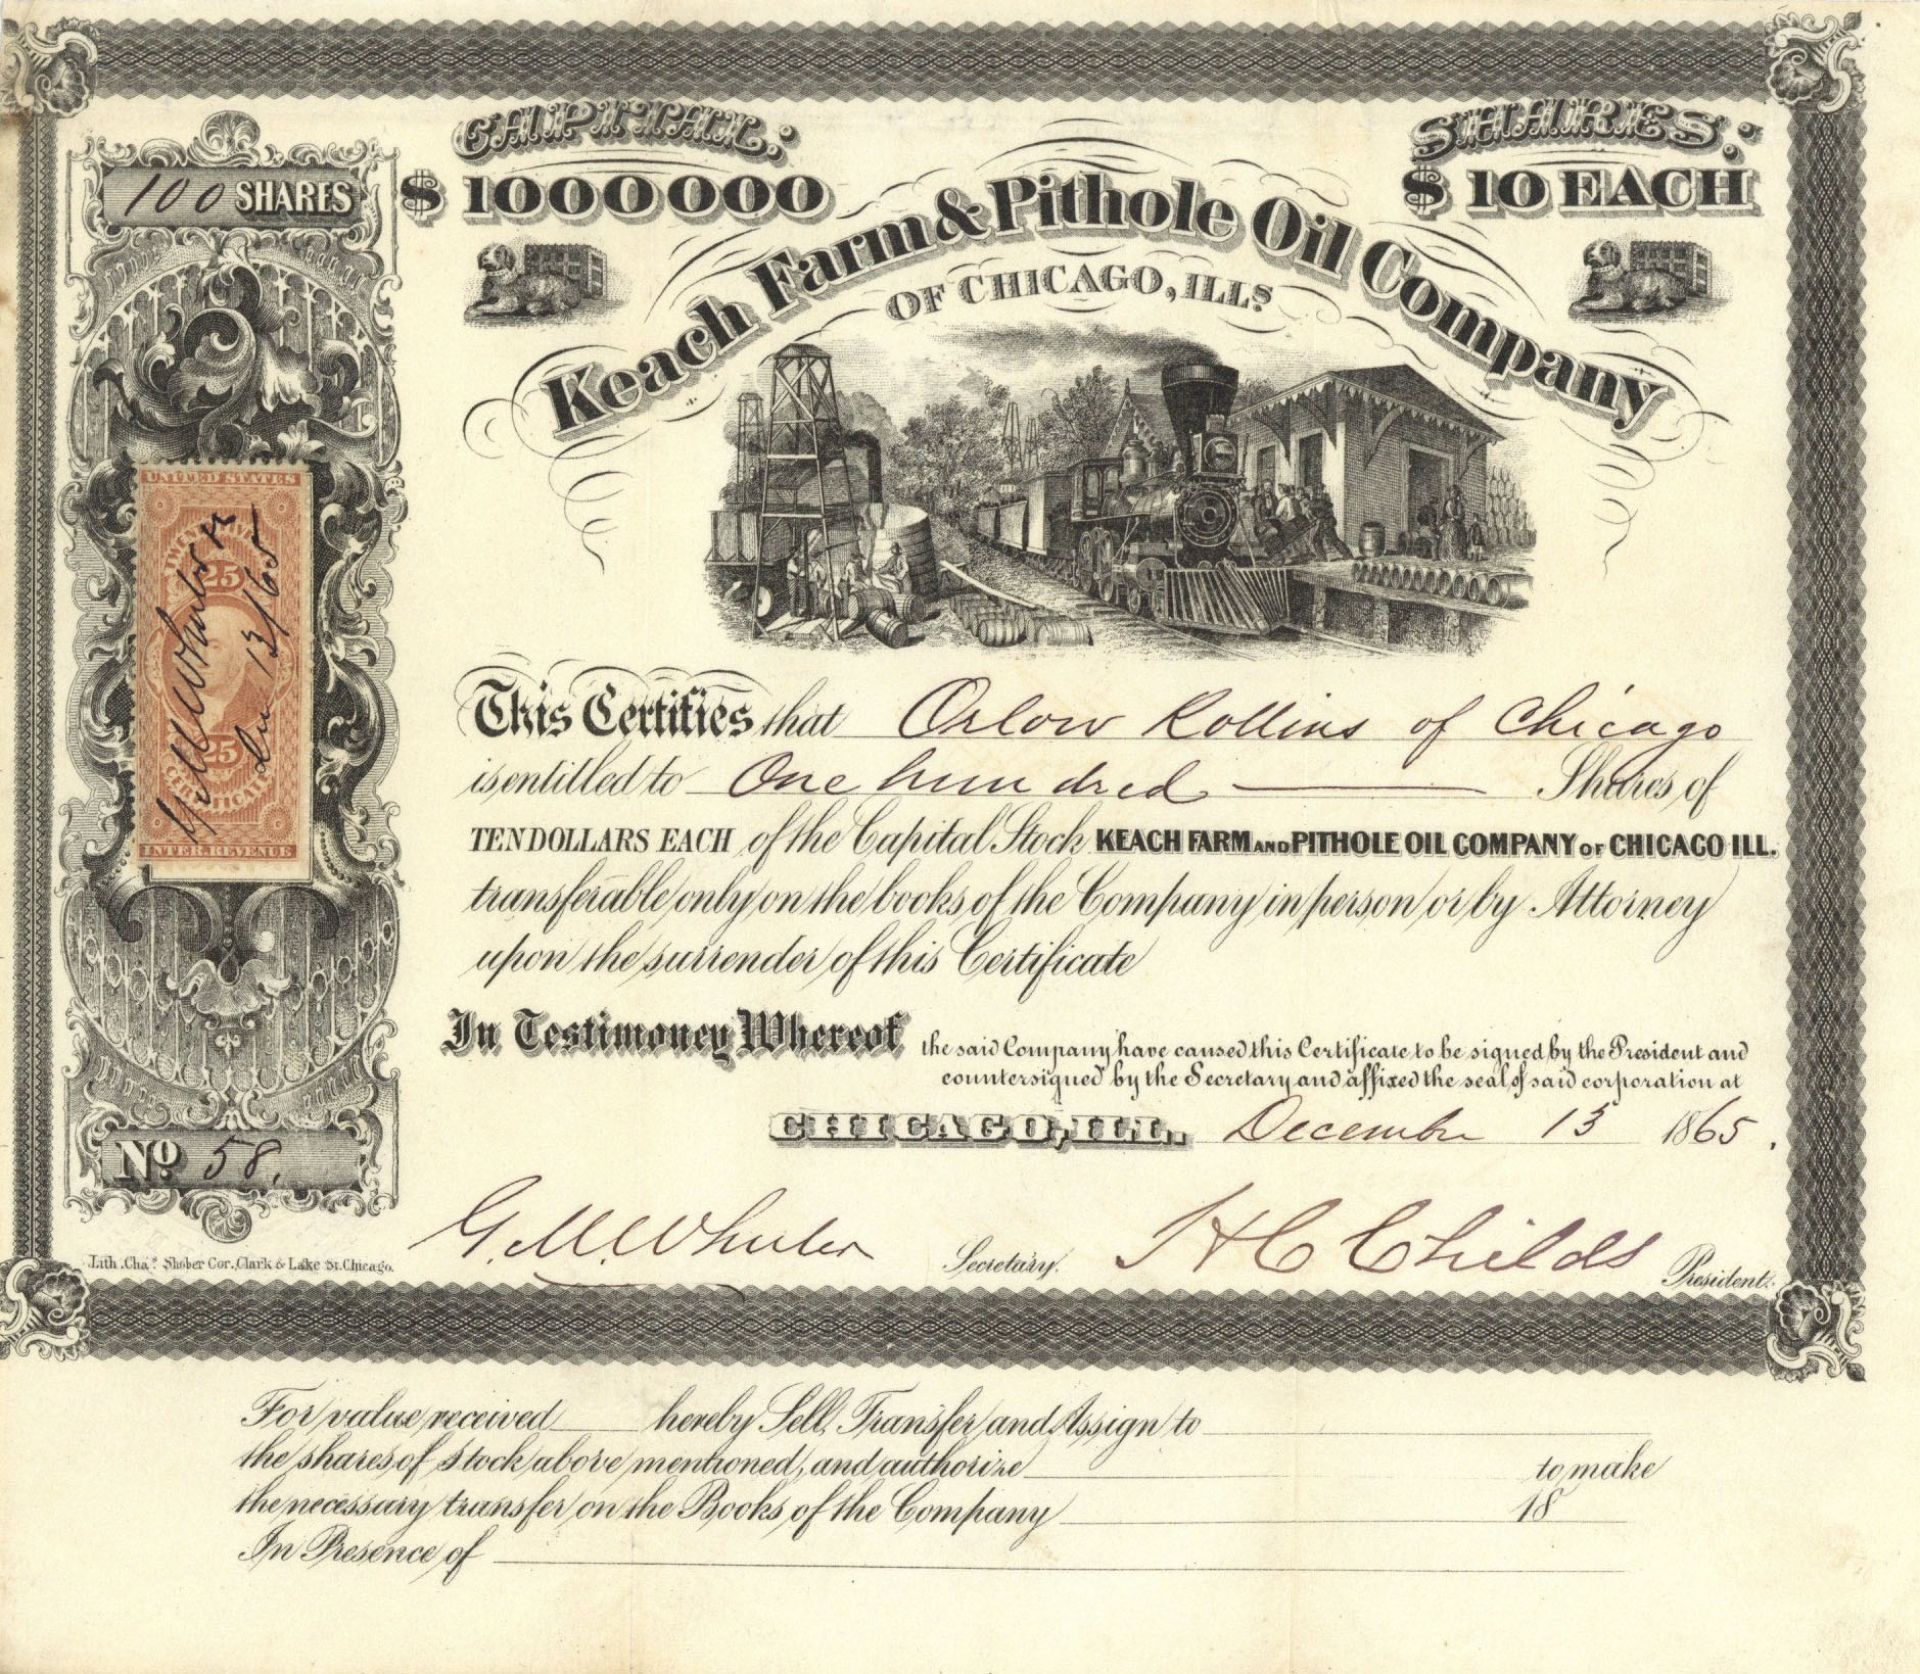 CAPITAL: SHARES:
$1000000 $10 EACH
100 SHARES
Keach Farm & Pithole Oil Company
OF CHICAGO, ILLS.
UNITED STATES
TWENTY FIVE
25
25
CERTIFICATE
INTER. REVENUE
G M Wheeler
Dec 13/65
This Certifies that Orlow Rollins of Chicago
is entitled to One hundred Shares of
TEN DOLLARS EACH of the Capital Stock KEACH FARM AND PITHOLE OIL COMPANY OF CHICAGO ILL.
transferable only on the books of the Company in person or by Attorney
upon the surrender of this Certificate
In Testimoney Whereof the said Company have caused this Certificate to be signed by the President and
countersigned by the Secretary and affixed the seal of said corporation at
CHICAGO, ILL. December 13 1865.
No 58.
G. M. Wheeler Secretary. H C Childs President.
Lith. Chas. Shober Cor. Clark & Lake St. Chicago.
For value received hereby Sell, Transfer and Assign to
the shares of Stock above mentioned, and authorize to make
the necessary transfer on the Books of the Company 18
In Presence of